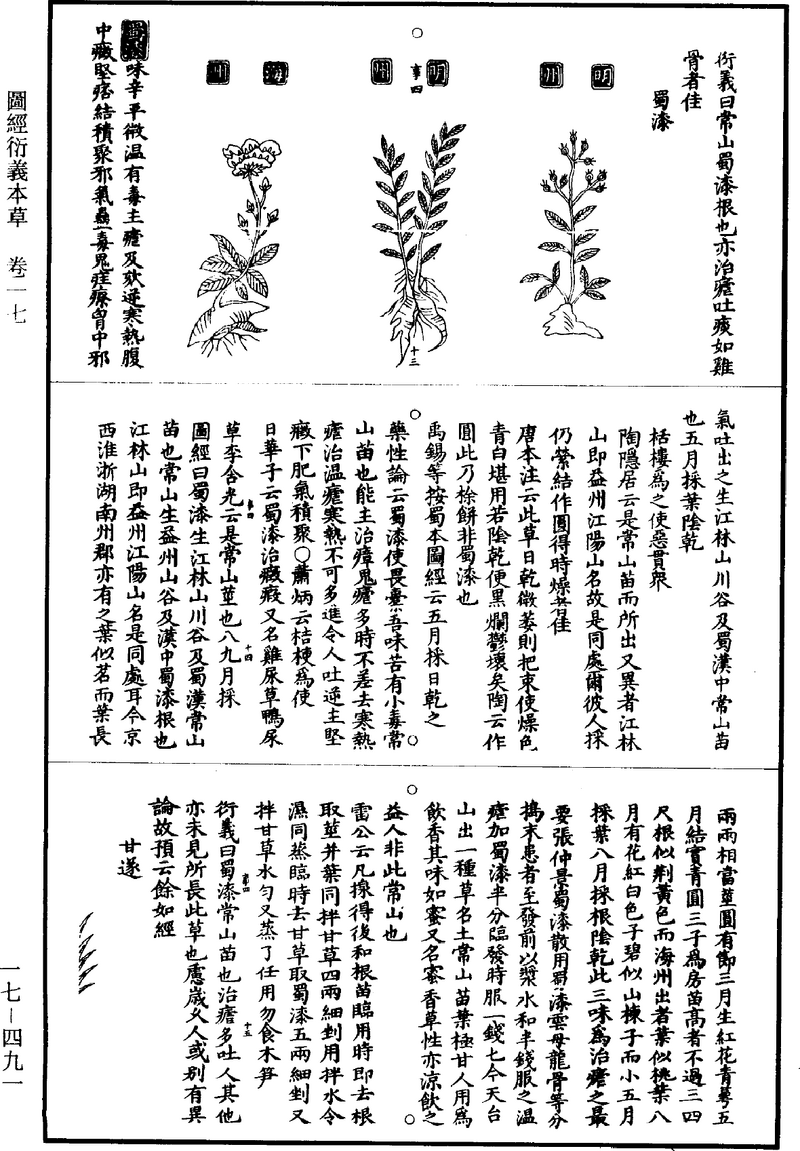 圖經衍義本草　卷一七
衍義曰常山蜀漆根也亦治瘧吐痰如雞
骨者佳
蜀漆
明州
明州
海州
蜀漆味辛平微温有毒主瘧及欬逆寒熱腹
中癥堅痞結積聚邪氣蠱毒鬼疰療胷中邪
氣吐出之生江林山川谷及蜀漢中常山苗
也五月採葉陰乾
栝樓為之使惡貫衆
陶隱居云是常山苗而所出又異者江林
山即益州江陽山名故是同處爾彼人採
仍縈結作圓得時燥者佳
唐本注云此草日乾微萎則把束使燥色
青白堪用若陰乾便黒爛鬱壞矣陶云作
圓此乃梌餅非蜀漆也
禹錫等按蜀本圖經云五月採日乾之
藥性論云蜀漆使畏橐吾味苦有小毒常
山苗也能主治瘴鬼瘧多時不差去寒熱
瘧治温瘧寒熱不可多進令人吐逆主堅
癥下肥氣積聚○蕭炳云桔梗為使
日華子云蜀漆治癥瘕又名雞尿草鴨尿
草李含光云是常山莖也八九月採
圖經曰蜀漆生江林山川谷及蜀漢常山
苗也常山生益州山谷及漢中蜀漆根也
江林山即益州江陽山名是同處耳今京
西淮浙湖南州郡亦有之葉似茗而葉長
兩兩相當莖圓有節三月生紅花青萼五
月結實青圓三子為房苗高者不過三四
尺根似荆黄色而海州出者葉似楸葉八
月有花紅白色子碧似山楝子而小五月
採葉八月採根陰乾此三味為治瘧之最
要張仲景蜀漆散用蜀漆雲母龍骨等分
擣末患者至發前以漿水和半錢服之温
瘧加蜀漆半分臨發時服一錢七今天台
山出一種草名土常山苗葉極甘人用為
飲香其味如蜜又名蜜香草性亦涼飲之
益人非此常山也
雷公云凡採得後和根苗臨用時即去根
取莖并葉同拌甘草四兩細剉用拌水令
濕同蒸臨時去甘草取蜀漆五兩細剉又
拌甘草水勻又蒸了任用勿食木笋
衍義曰蜀漆常山苗也治瘧多吐人其他
亦未見所長此草也慮歲久人或别有異
論故預云餘如經
甘遂
一七—四九一